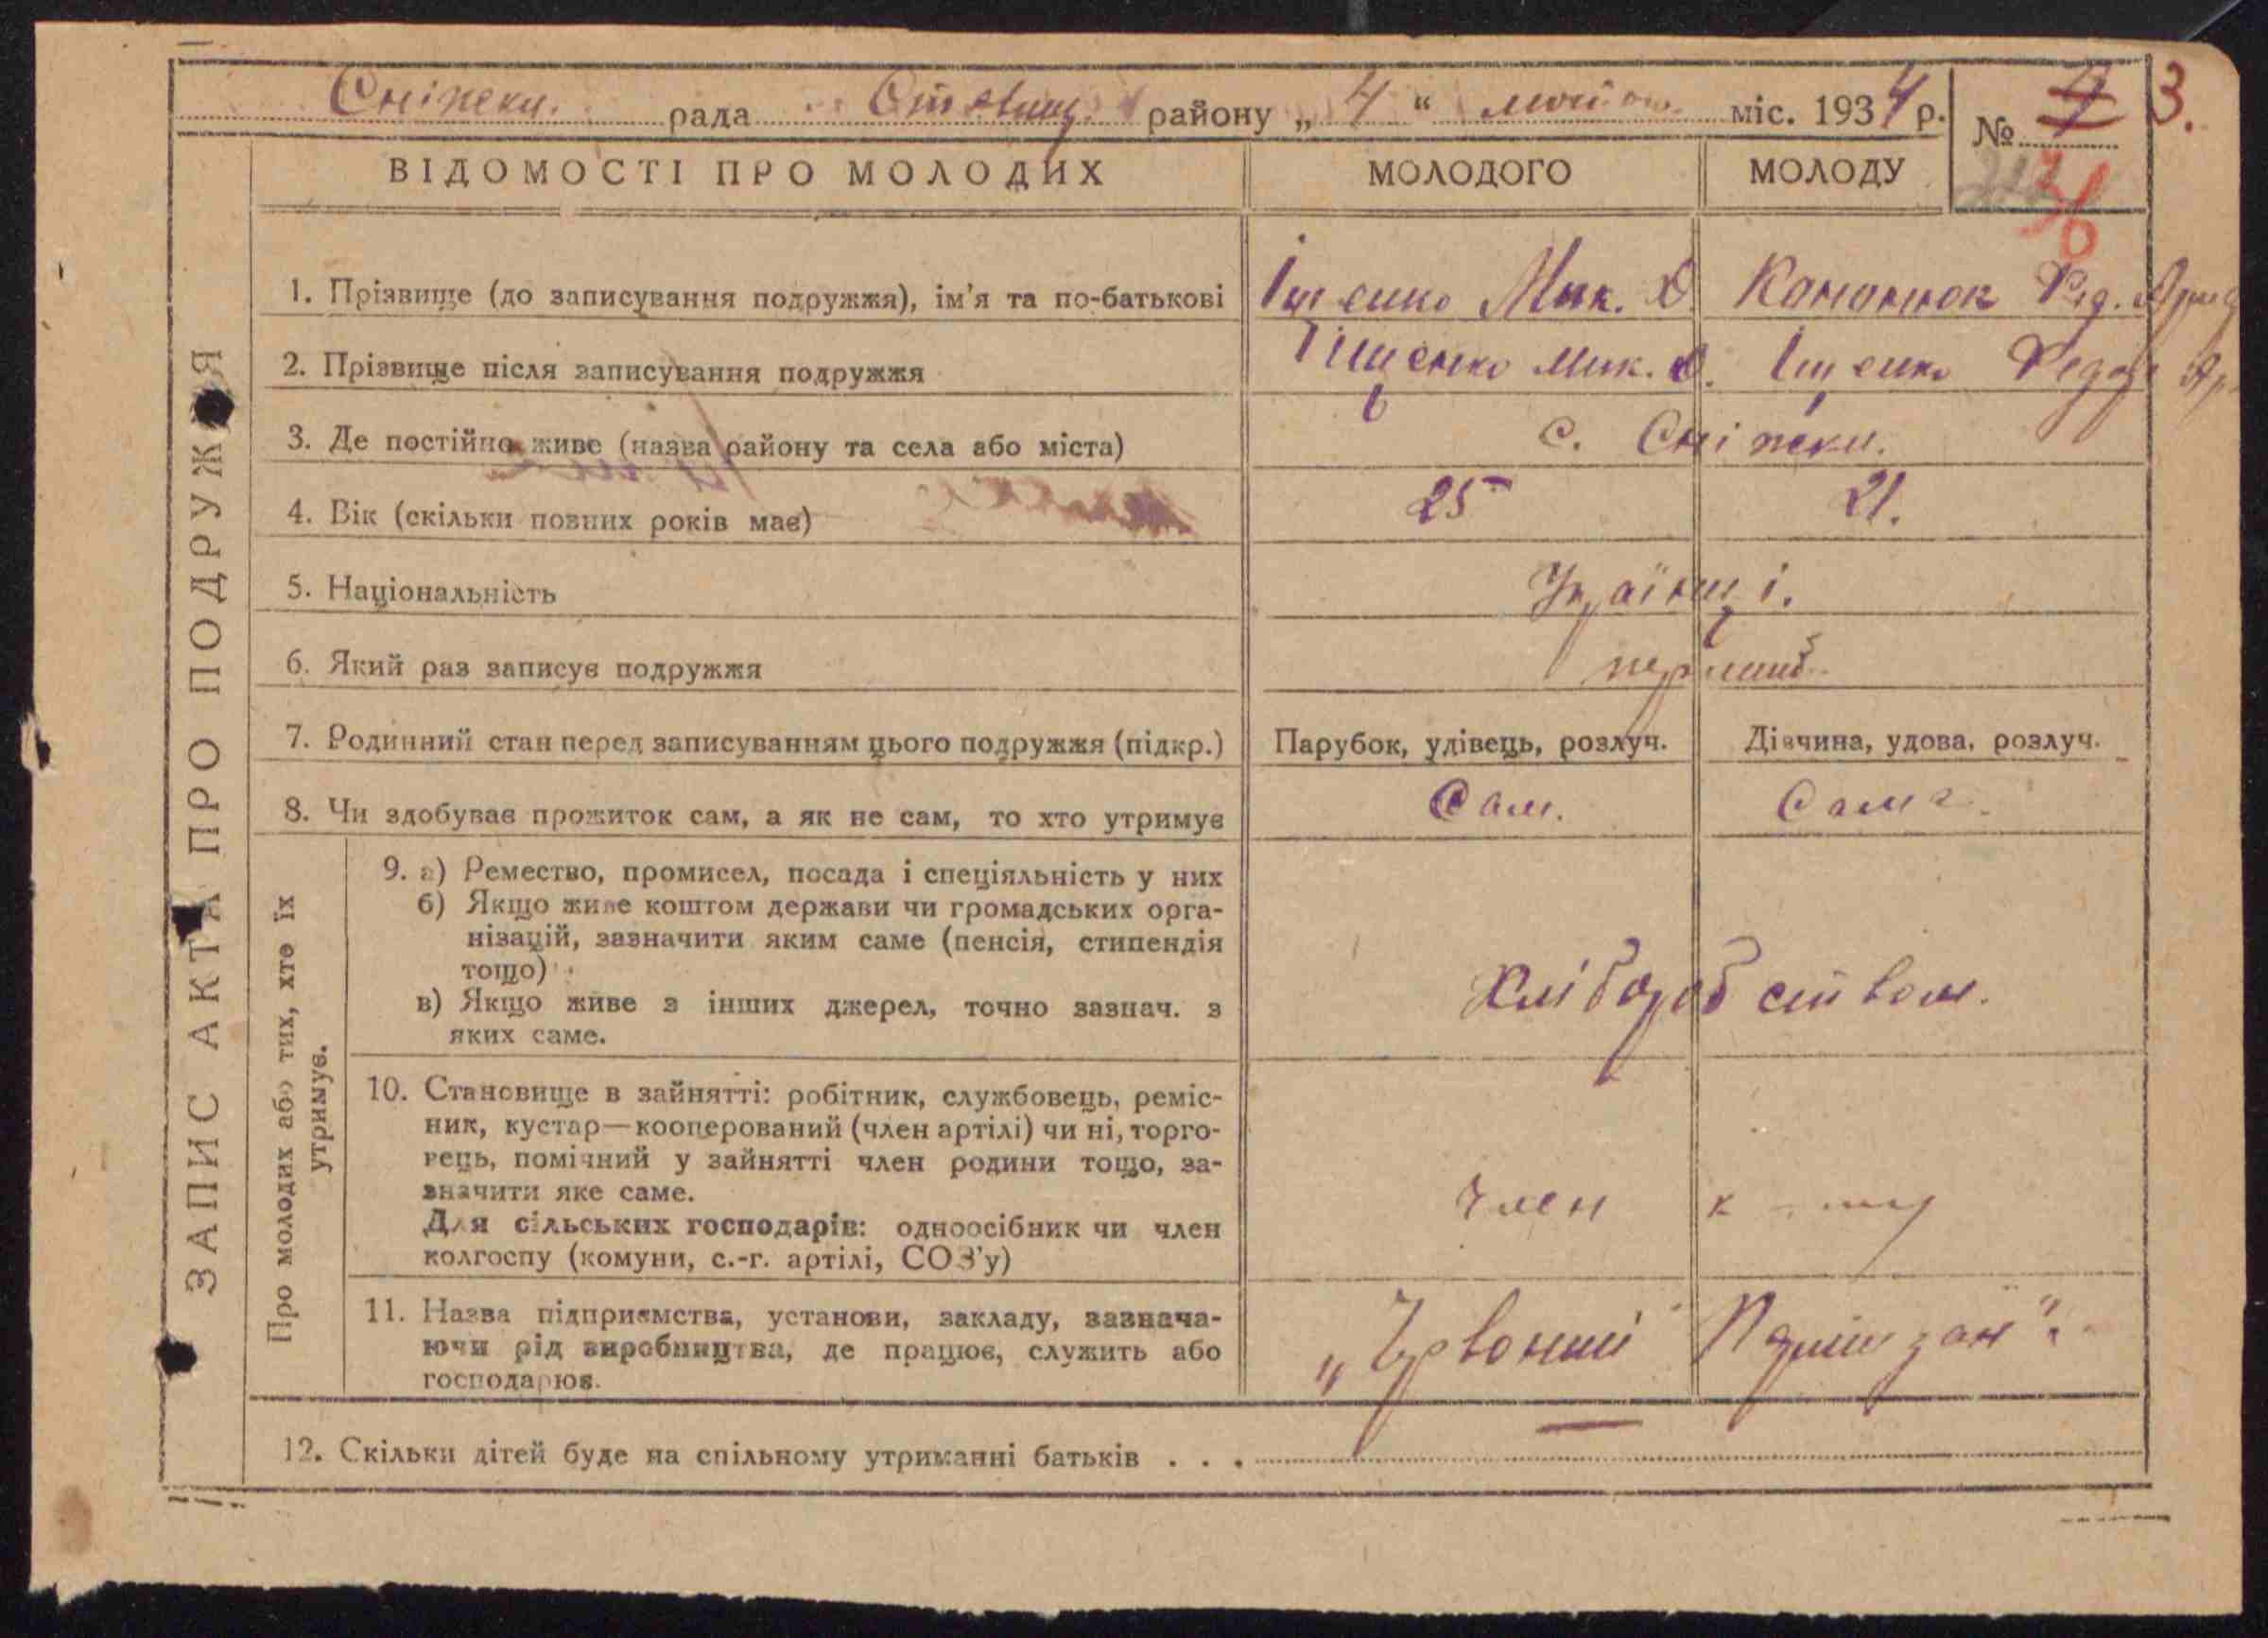 Сніпеки. рада Ставищ. району „4“ міс. 1934 р. № 3.
ВІДОМОСТІ ПРО МОЛОДИХ МОЛОДОГО МОЛОДУ
ЗАПИС АКТА ПРО ПОДРУЖЖЯ
1. Прізвище (до записування подружжя), ім'я та по-батькові Іщенко Мик. О. Кононюк Фед.
2. Прізвище після записування подружжя Іщенко Мик. О. Іщенко
3. Де постійно живе (назва району та села або міста) с. Сніпеки.
4. Вік (скільки повних років має) 25 21.
5. Національність Українці.
6. Який раз записує подружжя перший
7. Родинний стан перед записуванням цього подружжя (підкр.) Парубок, удівець, розлуч. Дівчина, удова, розлуч.
8. Чи здобуває прожиток сам, а як не сам, то хто утримує Сам. Сама.
Про молодих або тих, хто їх
утримує.
9. а) Ремество, промисел, посада і спеціяльність у них
б) Якщо живе коштом держави чи громадських орга-
нізацій, зазначити яким саме (пенсія, стипендія
тощо)
в) Якщо живе з інших джерел, точно зазнач. з
яких саме.
Хліборобством.
10. Становище в зайнятті: робітник, службовець, реміс-
ник, кустар—кооперований (член артілі) чи ні, торго-
вець, помічний у зайнятті член родини тощо, за-
значити яке саме.
Для сільських господарів: одноосібник чи член
колгоспу (комуни, с.-г. артілі, СОЗ'у)
член
11. Назва підприємства, установи, закладу, зазнача-
ючи рід виробництва, де працює, служить або
господарює.
„Червоний Партизан“.
12. Скільки дітей буде на спільному утриманні батьків . . . —